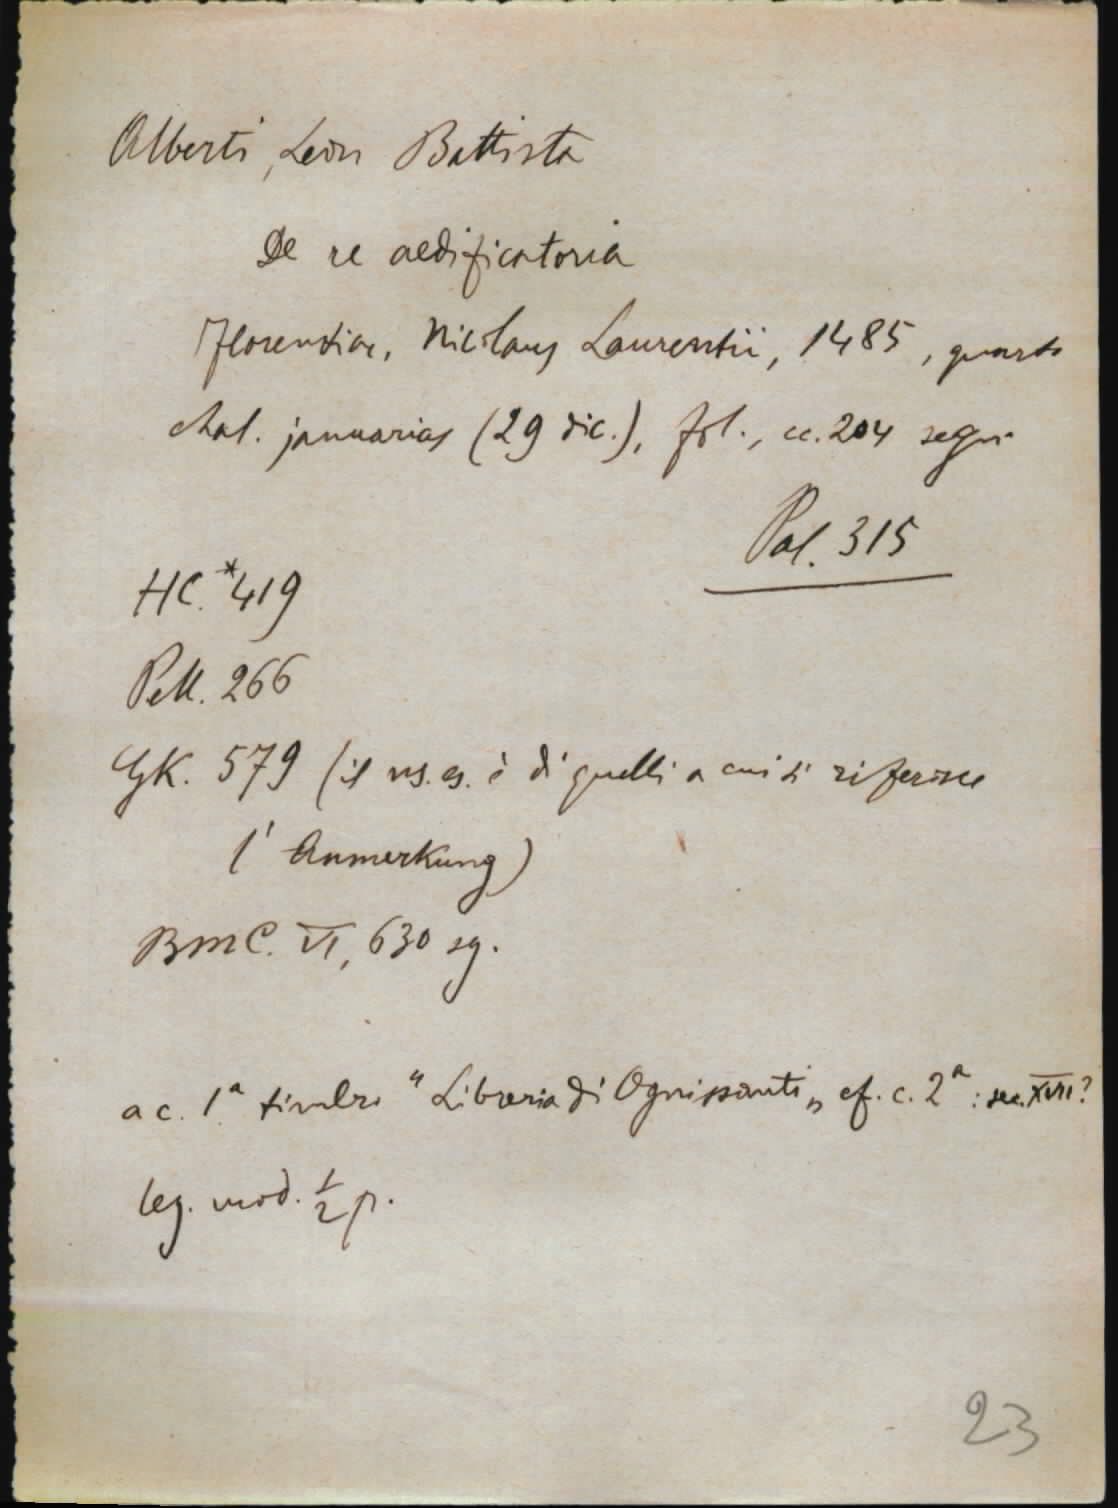 Alberti, Leon Battista
De re aedificatoria
Florentiae, Nicolaus Laurentii, 1485, quarto
chal. januarias (29 dic.), fol., cc. 204 segn.
Pal. 315
HC. *419
Pell. 266
GK. 579 (il ns. es. è di quelli a cui si riferisce
l' Anmerkung)
BMC. VI, 630 sg.
a c. 1ª timbro "Libreria di Ognissanti„ cf. c. 2ª : sec. XVII?
leg. mod. ½ p.
23